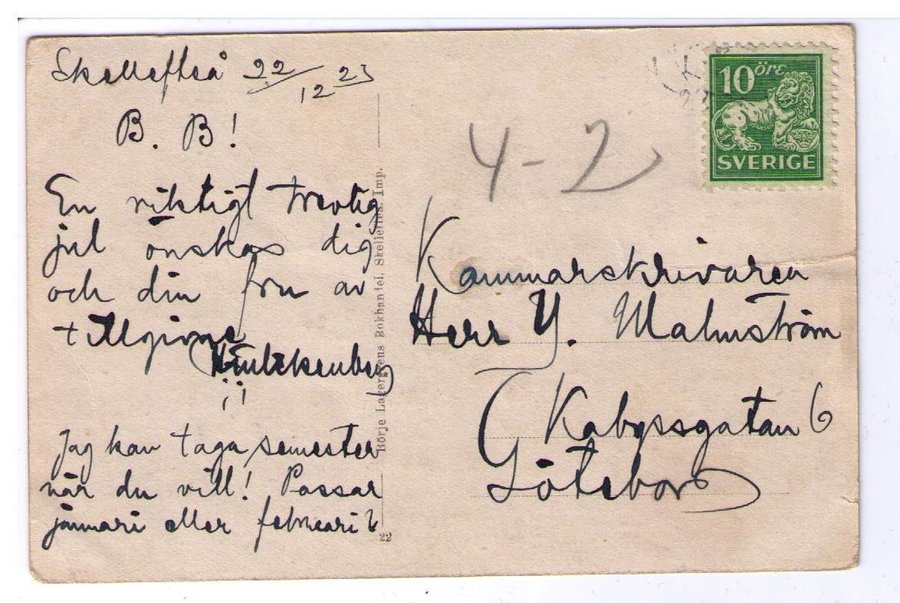 Skellefteå 22/12 23
B. B!
En riktigt trevlig
jul önskas dig
och din fru av
tillgivne
Jag kan taga semester
när du vill! Passar
januari eller februari?
Börje Lagergrens Bokhandel, Skellefteå. Imp.
22
4-2
10 öre
SVERIGE
Kammarskrivaren
Herr Y. Malmström
Kabyssgatan 6
Göteborg